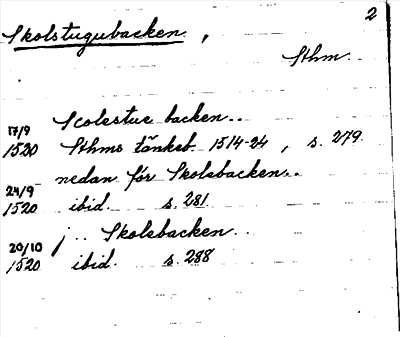 2
Skolstugubacken,
Sthm.
17/9 Scolestue backen..
1520 Sthms tänkeb. 1514-24, s. 279.
nedan för Skolebacken..
24/9
1520 ibid. s. 281
j.. Skolebacken..
20/10
1520 ibid. s. 288